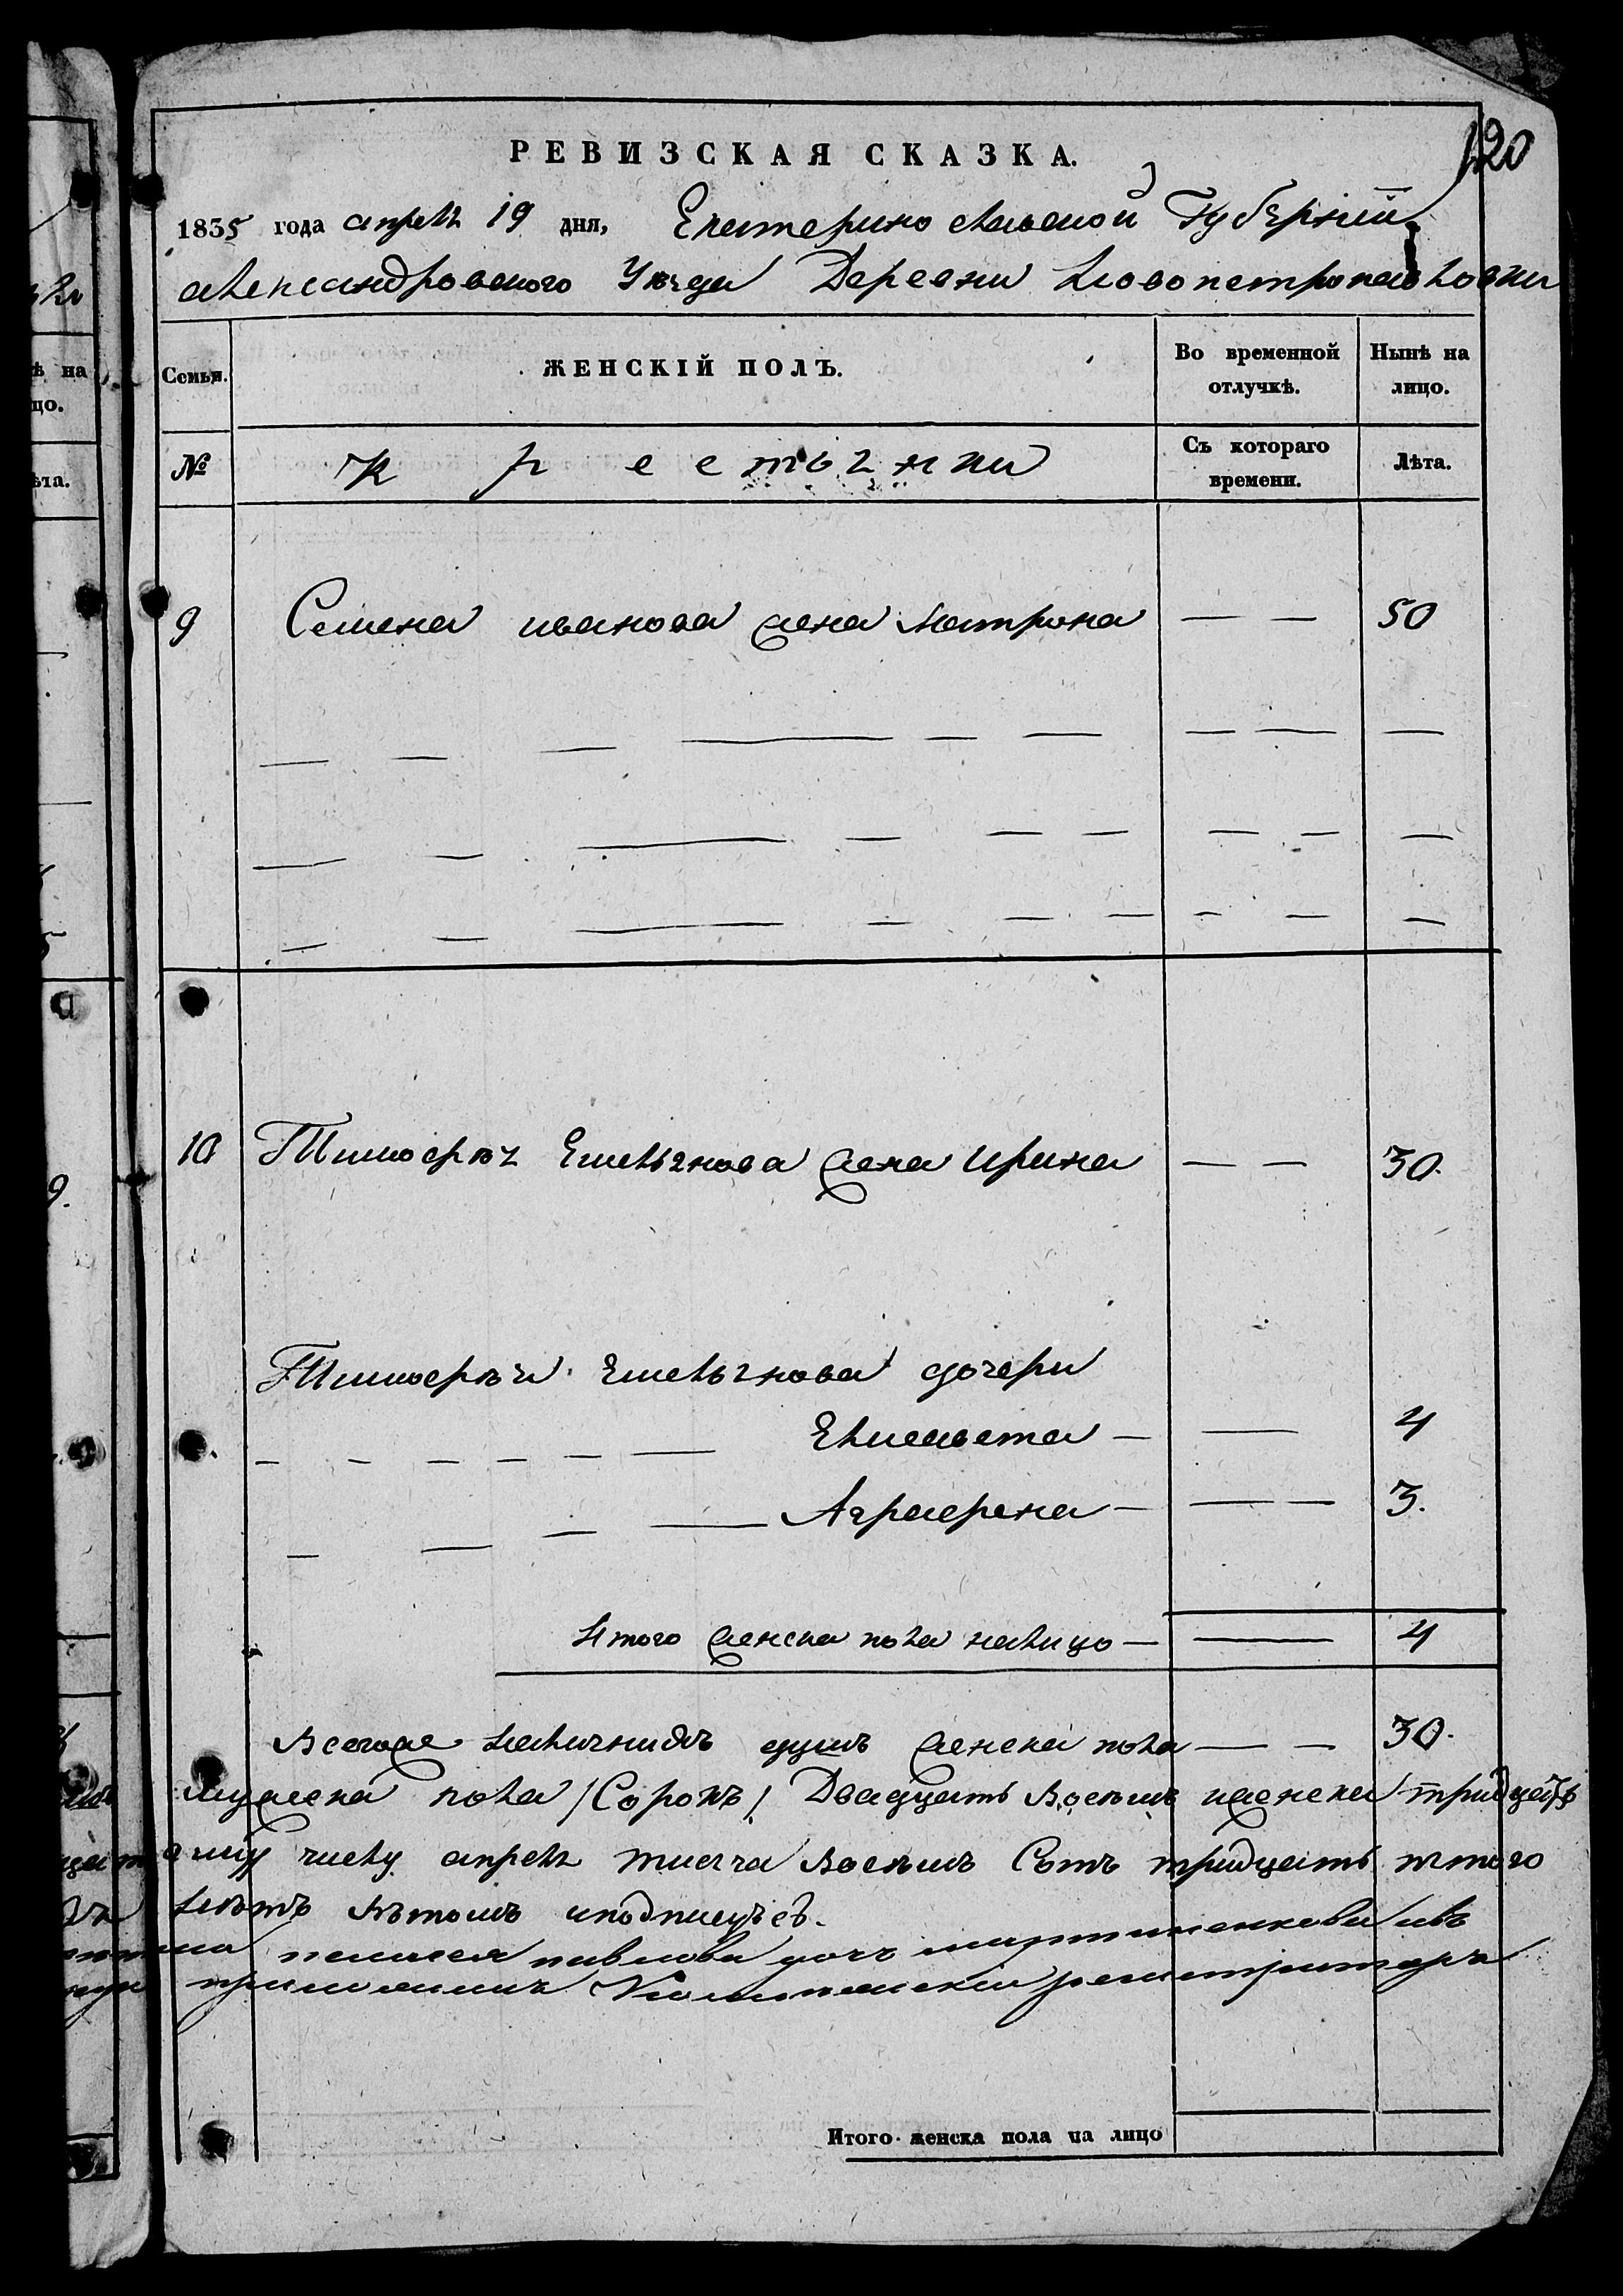 120
РЕВИЗСКАЯ СКАЗКА.
1835 года апреля 19 дня, Екатеринославской Губернии
александровского Уезда Деревни Новопетропавловки
Семья. ЖЕНСКІЙ ПОЛЪ. Во временной отлучкѣ. Нынѣ на лицо.
№ крестьянки Съ котораго времени. Лѣта.
9 Семена иванова жена Матрона — — 50
10 Тимофея Емельянова жена Ирина — — 30.
Тимофея Емельянова дочери
Елисавета — — 4
Аграфена — — 3.
Итого женска пола налицо — — 4
Всегоже наличнихъ душъ женска пола — — 30.
мужеска пола /Сорокъ/ Двадцать Восемь иженска тридцать
числу апреля тисяча восемъ Сотъ тридцать пятого
вътомъ
павлова дочь
регистраторъ
Итого женска пола на лицо